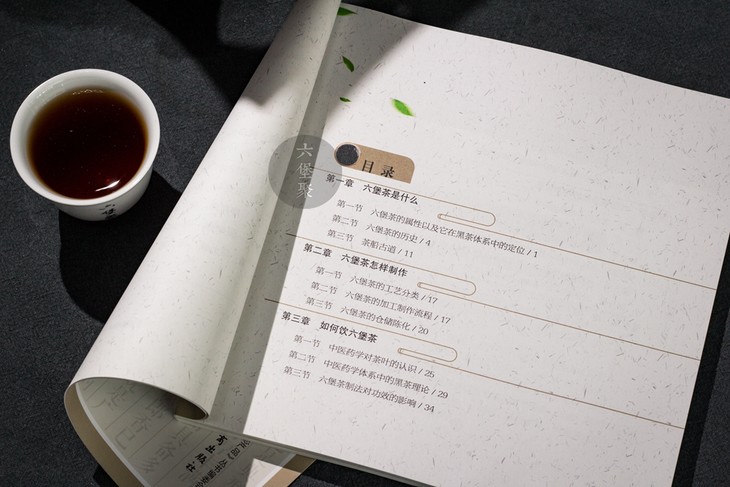 六堡聚
目录
第一章 六堡茶是什么
第一节 六堡茶的属性以及它在黑茶体系中的定位 / 1
第二节 六堡茶的历史 / 4
第三节 茶船古道 / 11
第二章 六堡茶怎样制作
第一节 六堡茶的工艺分类 / 17
第二节 六堡茶的加工制作流程 / 17
第三节 六堡茶的仓储陈化 / 20
第三章 如何饮六堡茶
第一节 中医药学对茶叶的认识 / 25
第二节 中医药学体系中的黑茶理论 / 29
第三节 六堡茶制法对功效的影响 / 34
出版社